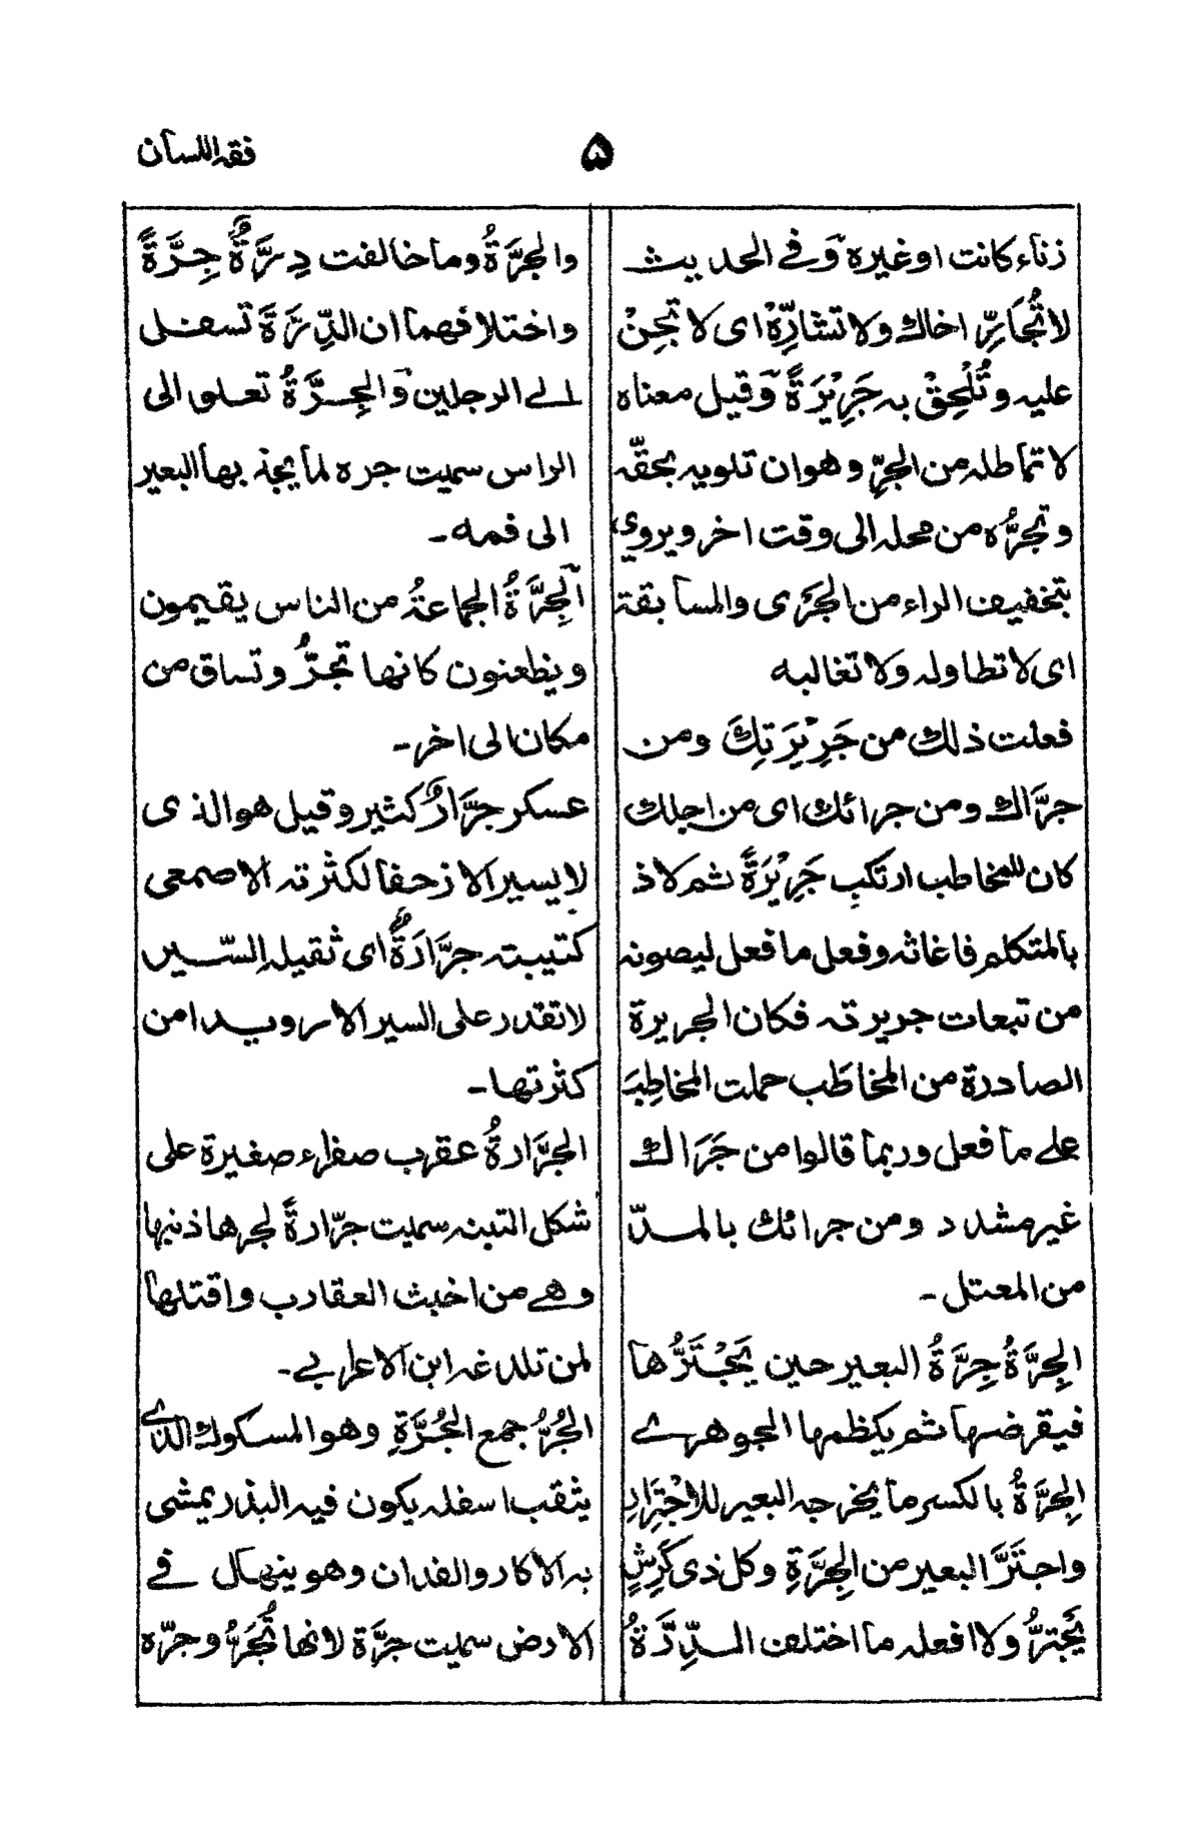 فقه اللسان
۵
زناء كانت او غيره وفي الحديث
لا تُجَارِّ اخاك ولا تشارِّهْ اى لا تجنْ
عليه وتُلْحِقْ به جَرِيْرَةً وقيل معناه
لا تماطله من الجرّ وهو ان تلويه بحقّه
وتجرُّه من محله الى وقت اخر ويروي
بتخفيف الراء من الجَرْى والمسابقة
اى لا تطاوله ولا تغالبه
فعلت ذلك من جَرِيْرَتِكَ ومن
جرَّاك ومن جرائك اى من اجلك
كان للمخاطب ارتكب جَرِيْرَةً ثم لاذ
بالمتكلم فاغاثه وفعل ما فعل ليصونه
من تبعات جريرته فكان الجريرة
الصادرة من المخاطَب حملت المخاطِبَ
على ما فعل وربما قالوا من جَرَاك
غير مشدد ومن جرائك بالمدّ
من المعتل ـ
الجِرَّةُ جِرَّةُ البعير حين يَجْتَرُّها
فيقرضها ثم يكظمها الجوهرے
الجِرَّةُ بالكسر ما يخرجه البعير للاجْتِرَارِ
واجتَرَّ البعير من الجِرَّةِ وكل ذى كَرِشٍ
يَجْترُّ ولا افعله ما اختلف الدِّرَّةُ
والجِرَّةُ وما خالفت دِرَّةٌ جِرَّةً
واختلافهما ان الدِّرَّةَ تسفل
الے الرجلين والجِرَّةُ تعلو الى
الراس سميت جره لما يجذبها البعير
الى فمه ـ
اَلجِرَّةُ الجماعةُ من الناس يقيمون
ويظعنون كانها تجرُّ وتساق من
مكان الى اخر ـ
عسكر جرَّارٌ كثير وقيل هو الذى
لا يسير الا زحفا لكثرته الاصمعى
كتيبته جرَّارَةٌ اى ثقيلة السّير
لا تقدر على السير الا رويدا من
كثرتها ـ
الجرَّارةُ عقرب صفراء صغيرة على
شكل التبنه سميت جرّارةً لجرها ذنبها
وهے من اخبث العقارب واقتلها
لمن تلدغه ابن الاعرابے ـ
الجُرُّ جمع الجُرَّةِ وهو المسكوك الذے
يثقب اسفله يكون فيه البذر يمشى
به الاكار والفدان وهو ينهال فے
الارض سميت جرَّة لانها تُجَرُّ وجرّه